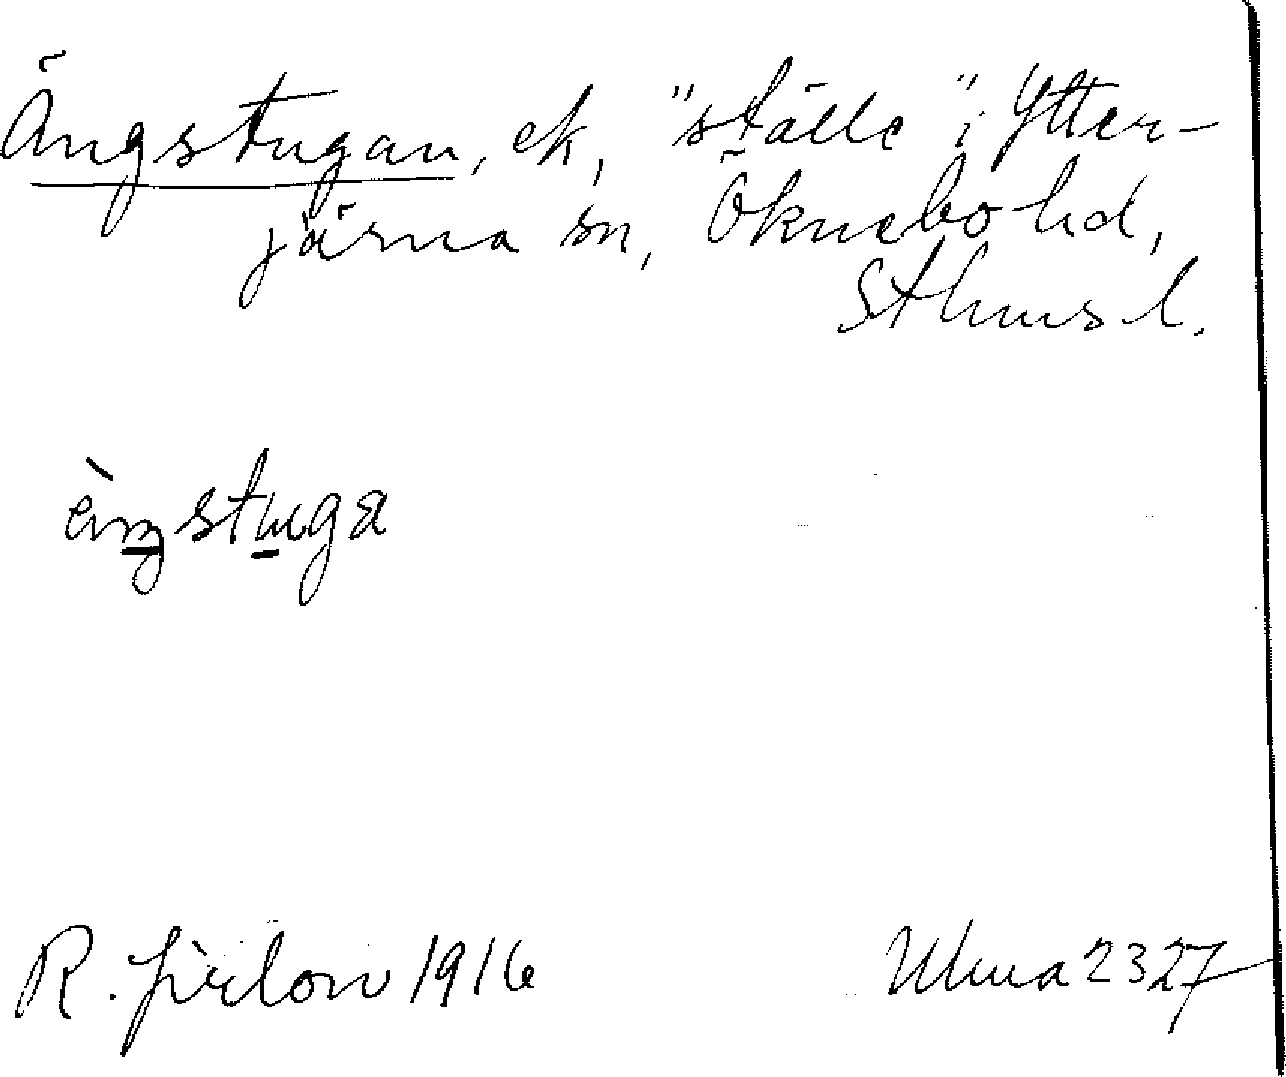 Ängstugan, ek, "ställe" i Ytter-
järna sn, Öknebo hd,
Sthms l.
èŋstuga
R. Jirlow 1916
Ulma 2327